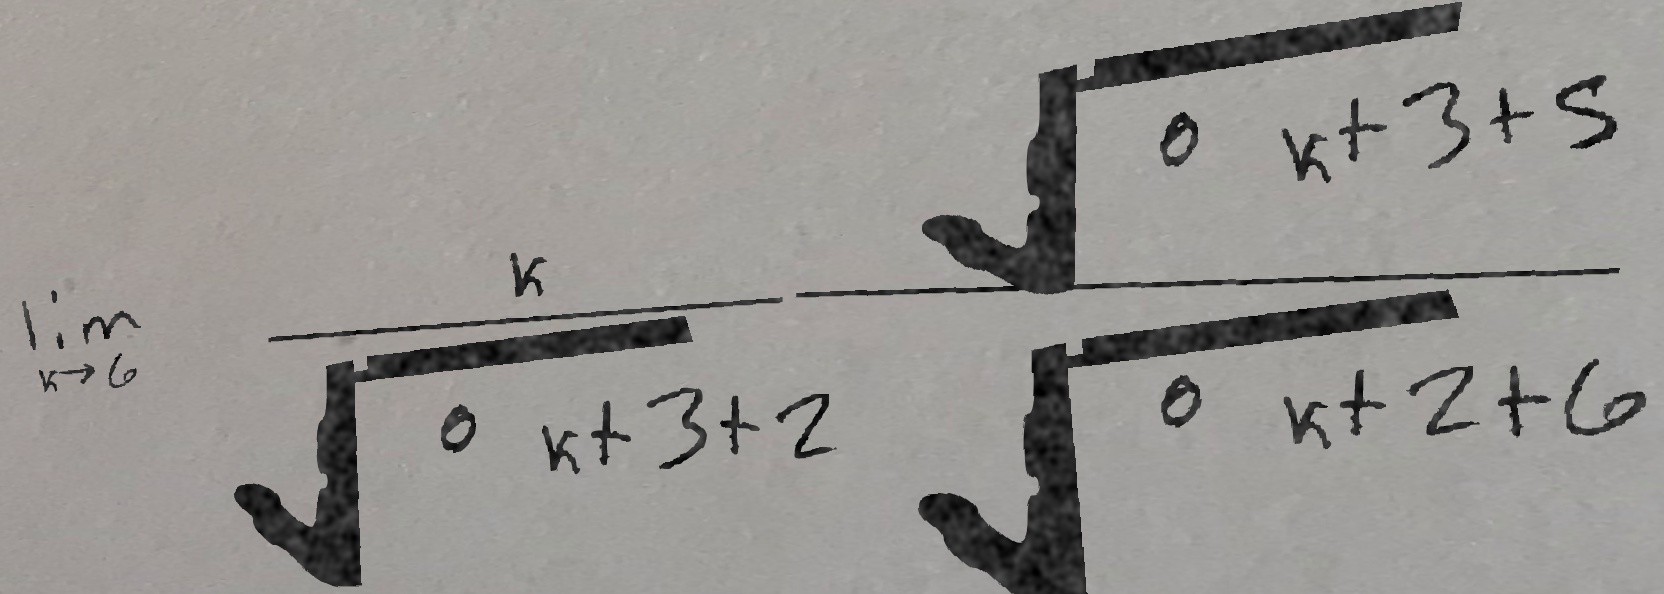 lim k→6 k/√0 k+3+2 √0 k+3+5/√0 k+2+6